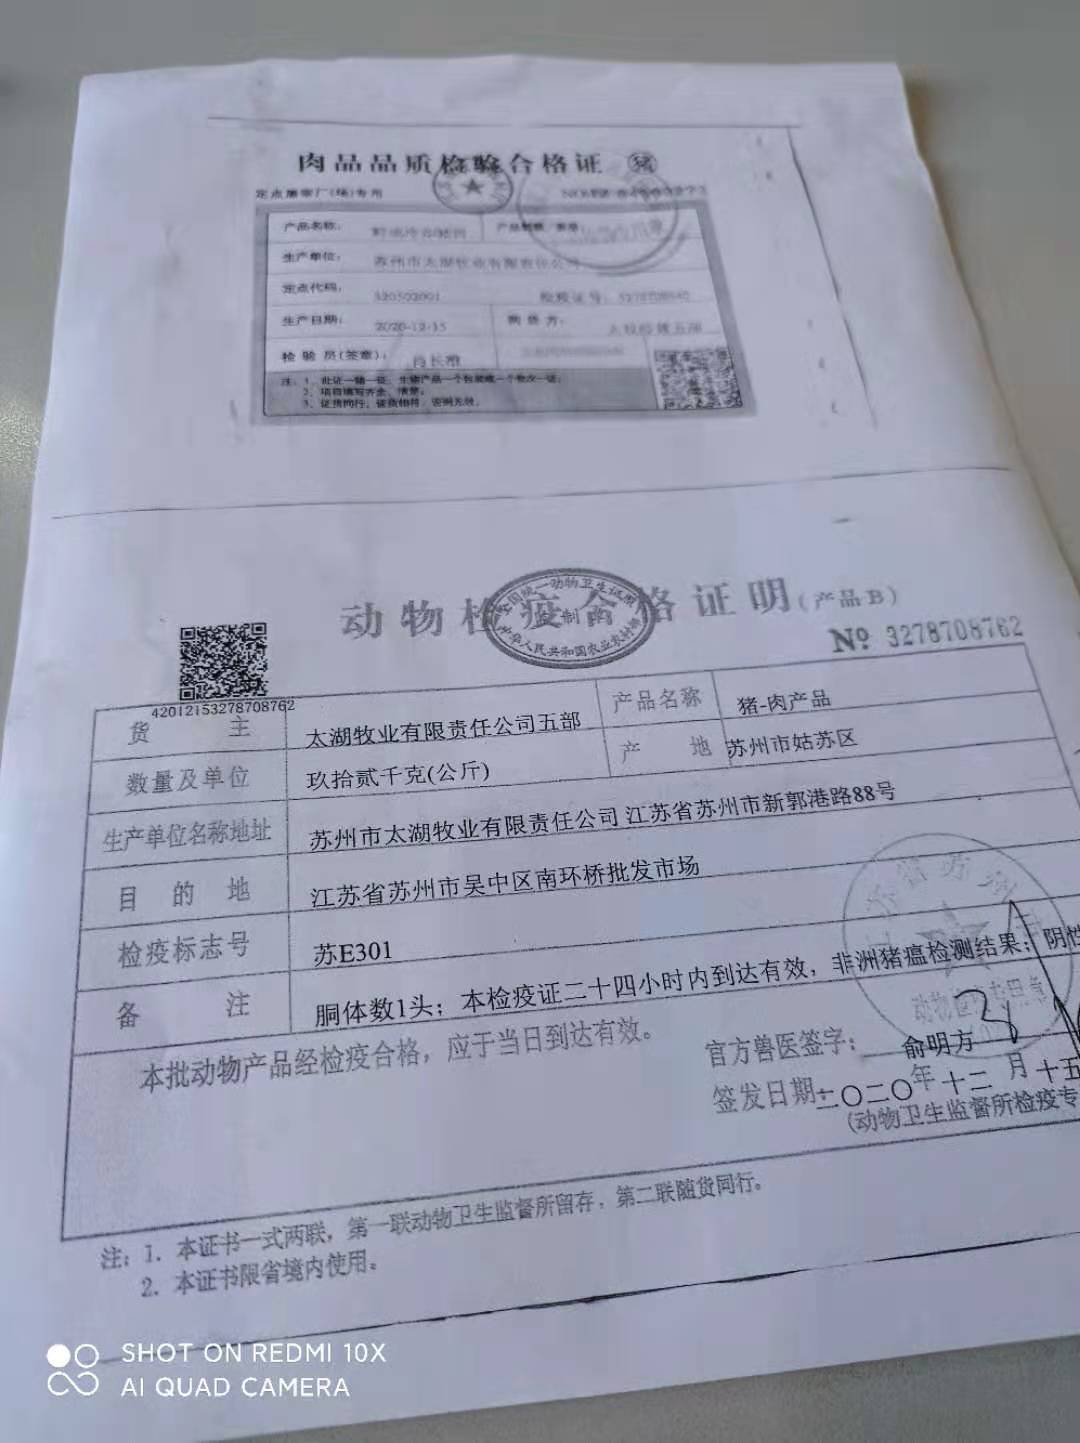 肉品品质检验合格证 猪
定点屠宰厂(场)专用
产品名称:
生产单位: 苏州市太湖牧业有限责任公司
定点代码: 320502001
生产日期: 2020-12-15
检验员(签章): 肖长雅
注: 1、此证一猪一证,生猪产品一个包装或一个批次一证;
2、项目填写齐全、清楚;
3、证货同行,证货相符,否则无效。
动物检疫合格证明(产品B)
全国统一动物卫生证照
监制
中华人民共和国农业农村部
№ 3278708762
42012153278708762
货主 太湖牧业有限责任公司五部 产品名称 猪-肉产品
数量及单位 玖拾贰千克(公斤) 产地 苏州市姑苏区
生产单位名称地址 苏州市太湖牧业有限责任公司 江苏省苏州市新郭港路88号
目的地 江苏省苏州市吴中区南环桥批发市场
检疫标志号 苏E301
备注 胴体数1头;本检疫证二十四小时内到达有效,非洲猪瘟检测结果:阴性
本批动物产品经检疫合格,应于当日到达有效。
官方兽医签字: 俞明方
签发日期:二〇二〇年十二月十五
(动物卫生监督所检疫专
注: 1. 本证书一式两联,第一联动物卫生监督所留存,第二联随货同行。
2. 本证书限省境内使用。
SHOT ON REDMI 10X
AI QUAD CAMERA